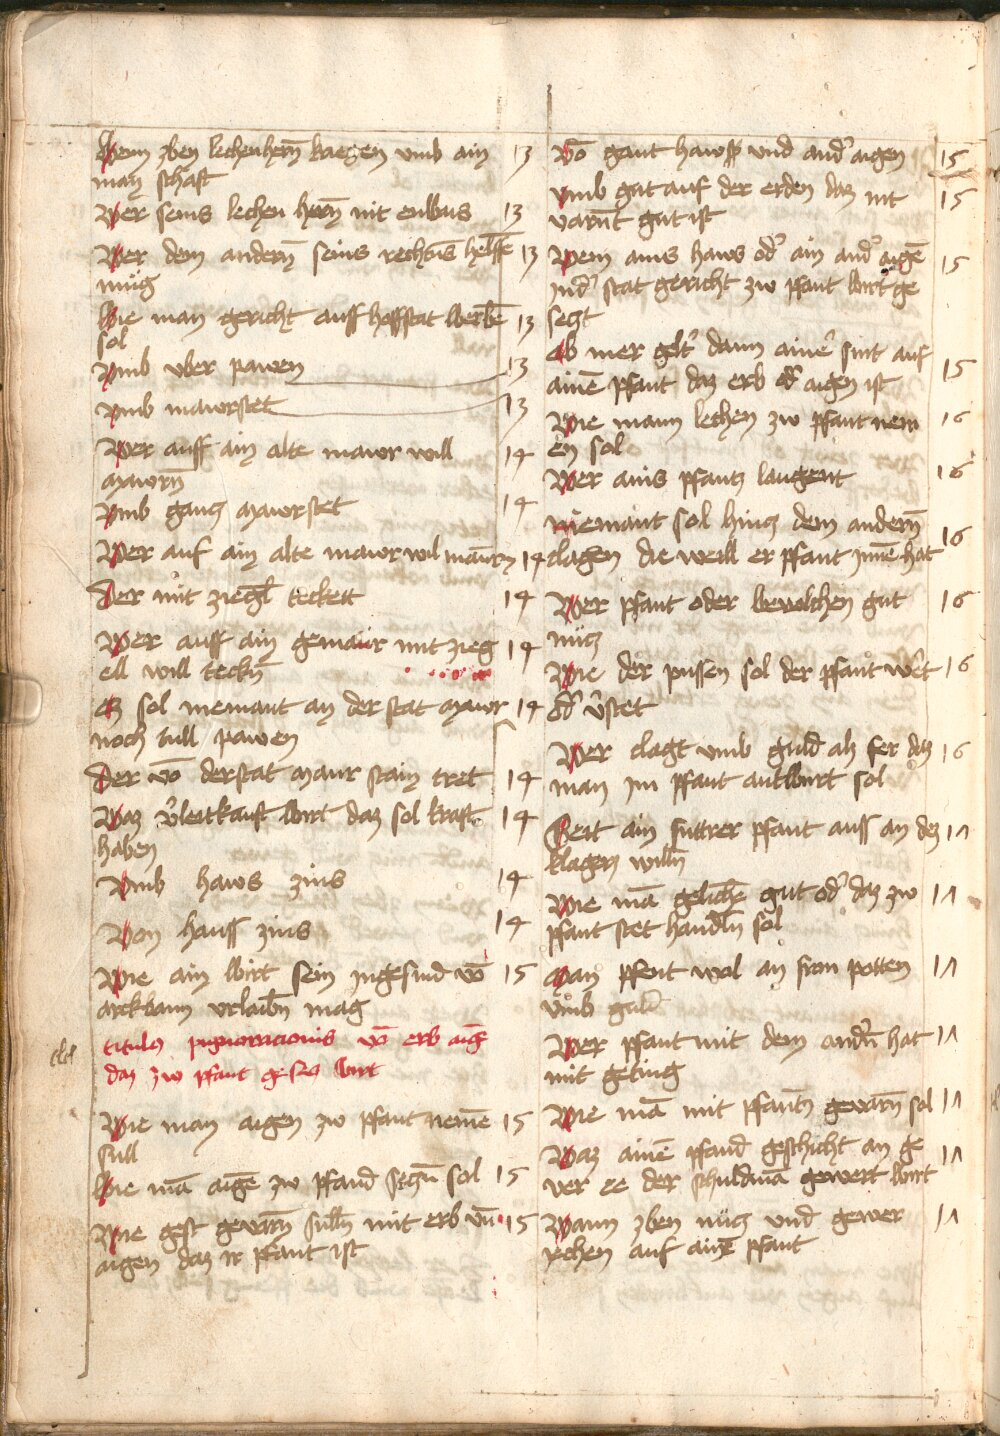 Wenn zben lechenhern̄ kriegen vmb ain 13
man schaft
Wer seins lechen hern̄ nit enlbas 13
Wer dem andern̄ seins rechtēs helffē 13
müg
Wie man gericht auff hoffstat werbē 13
sol
Vmb vber pawen 13
Vmb mawrstet 13
Wer auff ain alte mawr will 14
mawrn̄
Vmb gancz mawrstet 14
Wer auf ain alte mawr wil mawrn 14
Der mit ziegl teckett 14
Wer auff ain gemaür mit zieg 14
ell will teckn̄
Es sol niemant an der stat mawr 14
noch tull pawen
Der vō der stat maur stain tret 14
Waz v̄leitkauft wirt daz sol kraft 14
haben
Vmb haws zins 14
Von hauss zins 14
Wie ain wirt sein ingesind vō 15
arckbann vrlaubn̄ mag
titulus pignoracionis vō erb aigē
daz zw pfant geseczt wirt
Wie man aigen zw pfant nemē 15
sull
Wie mā aigē zw pfand seczn̄ sol 15
Wie gest gevarn̄ sulln̄ mit erb vn̄ 15
aigen daz ir pfant ist
Vō gant hawss vnd and' aigen 15
Vmb gut auf der erden daz nit 15
varnt gut ist
Wem ains haws od' ain and' aigē 15
ind' stat gericht zw pfant wirt ge
seczt
Ob mer gelt' dann ain' sint auf
ainē pfant daz erb od' aigen ist 15
Wie mann lechen zw pfant nem 16
en sol
Wer ains pfantz laugent 16
Niemant sol hincz dem andern̄
clagen die weill er pfant innē hat 16
Wer pfant oder bevolchen gut 16
nücz
Wie der pussen sol der pfant wert 16
od' v̄stet
Wer clagt vmb guld alz fer daz 16
man im pfant antwurt sol
Seit ain futtrer pfant auss an dez 17
klagers willn̄
Wie mā gelichē gut od' daz zw 17
pfant stet handeln̄ sol
Man pfent wol an fron potten 17
vmb guld
Wer pfant mit dem andn̄ hat 17
mit geding
Wie mā mit pfantn̄ gevarn̄ sol 17
Waz ainē pfand geschicht an ge
ver ee der schuldmā gewert wirt 17
Wann zben nücz vnd gewer 17
iechen auf ainē pfant